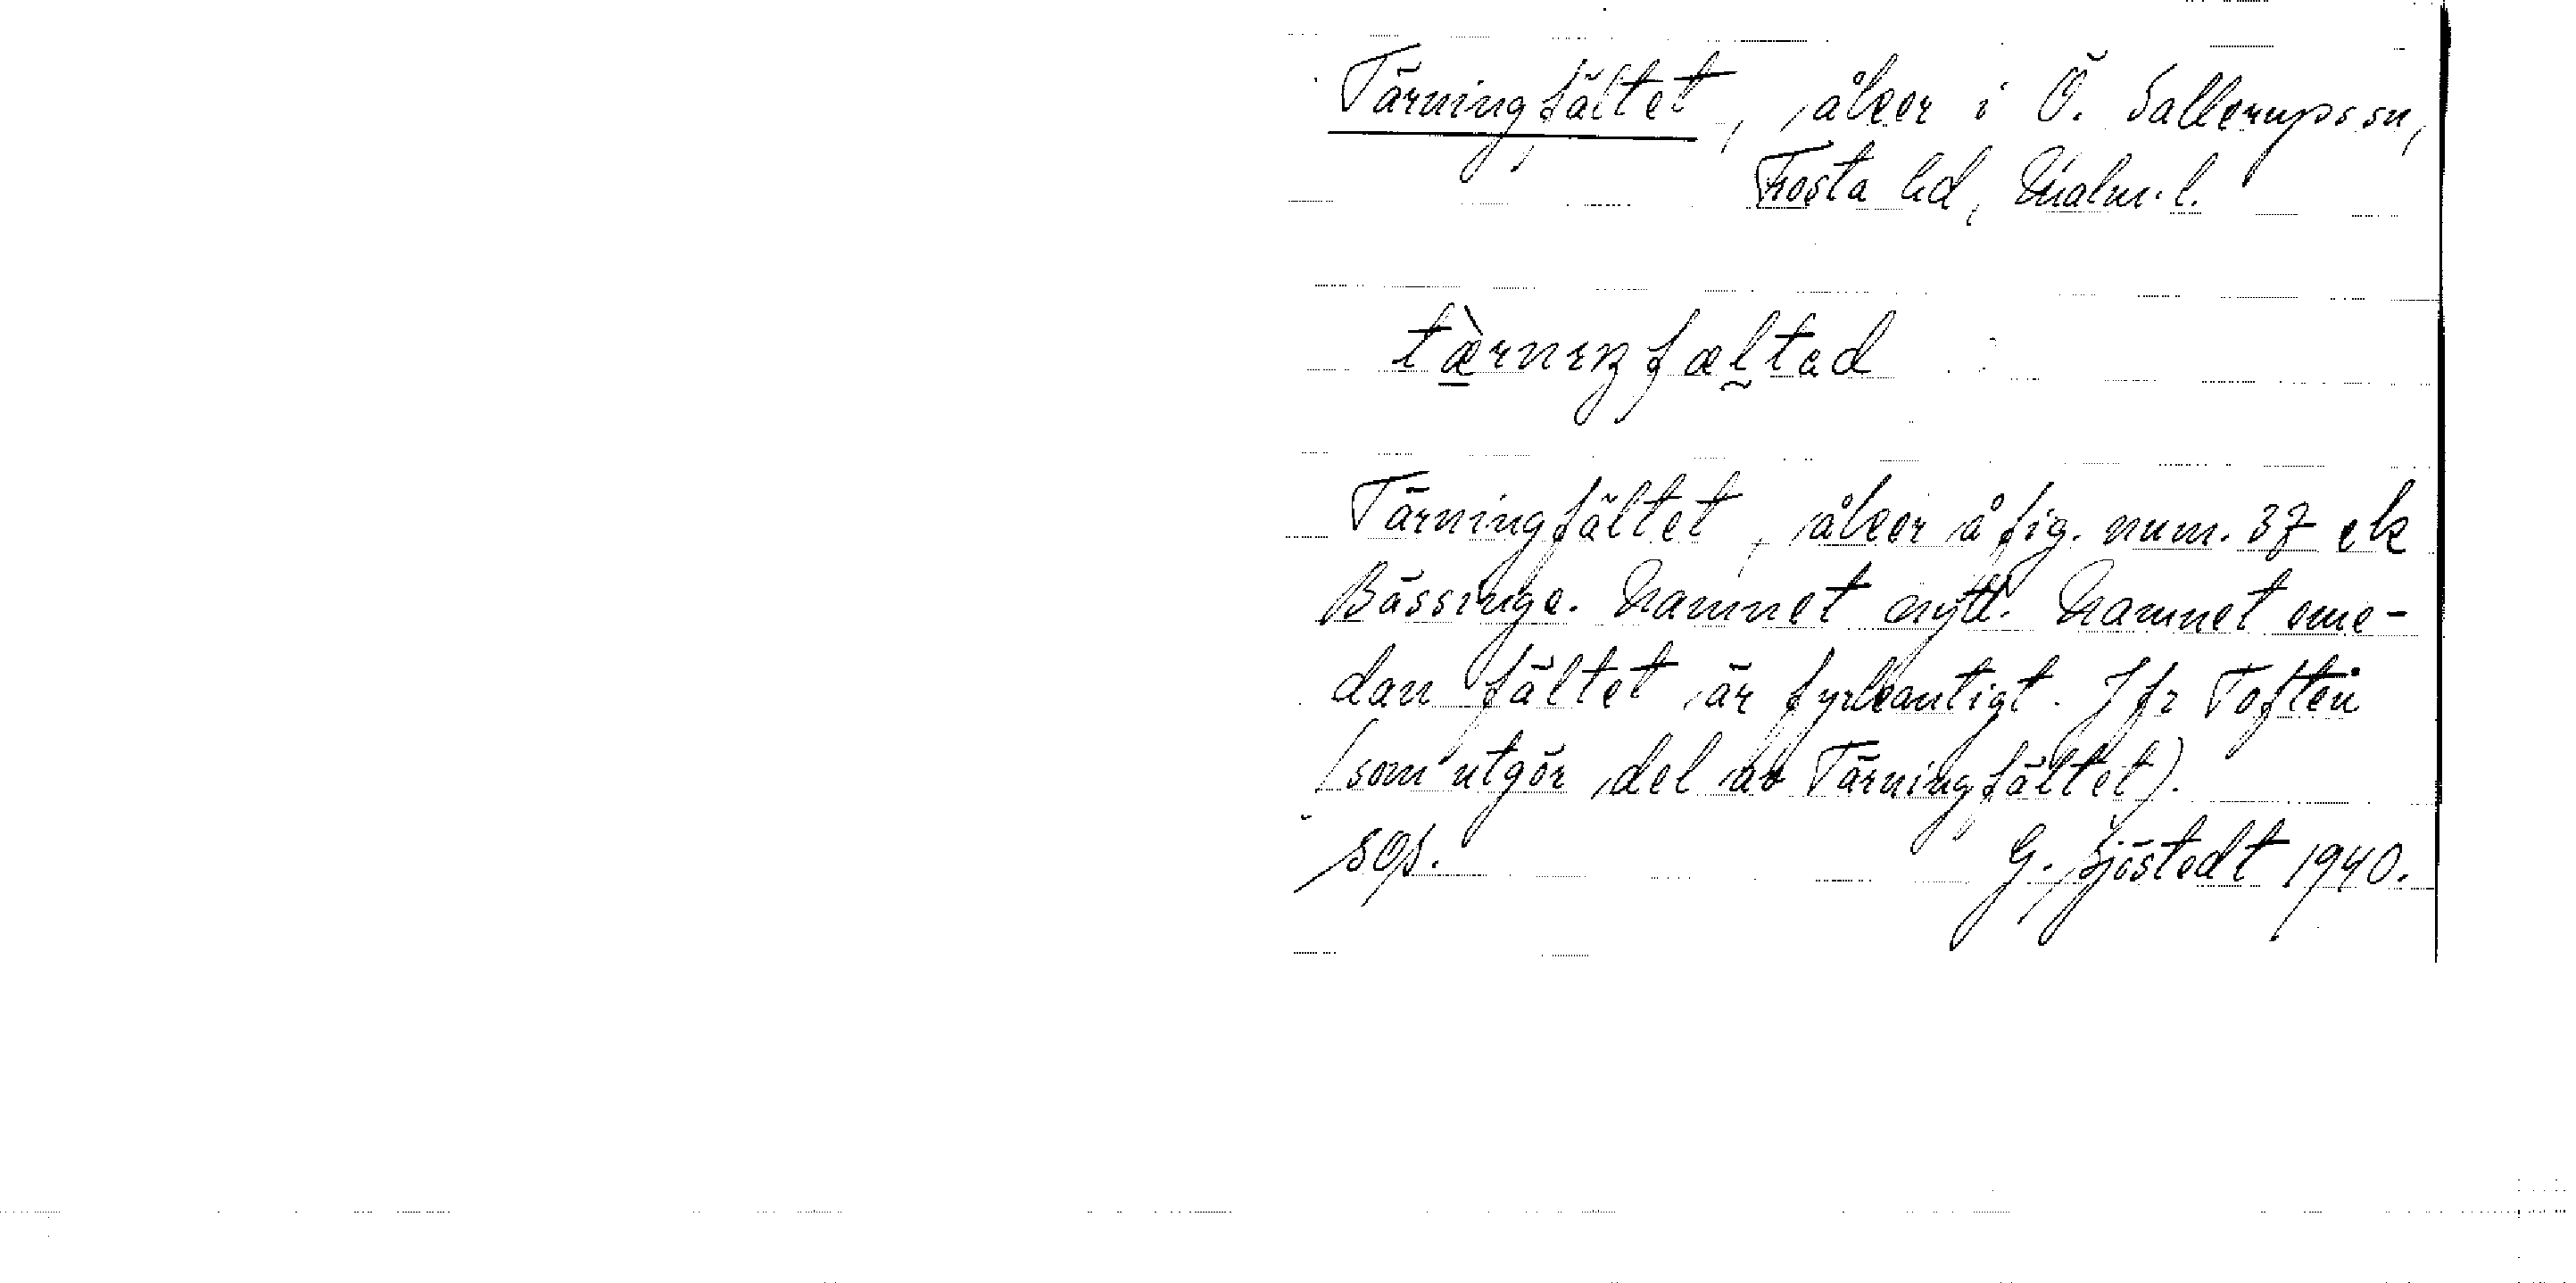 Tärningfältet, åker i Ö. Sallerups sn,
Frosta hd, Malm. l.
tæ̀rnıŋfæltad
Tärningfältet, åker å fig. num. 37 ek
Bässinge. Namnet nytt. Namnet eme-
dan fältet är fyrkantigt. Jfr Toften
(som utgör del av Tärningfältet).
sop.
G. Sjöstedt 1940.